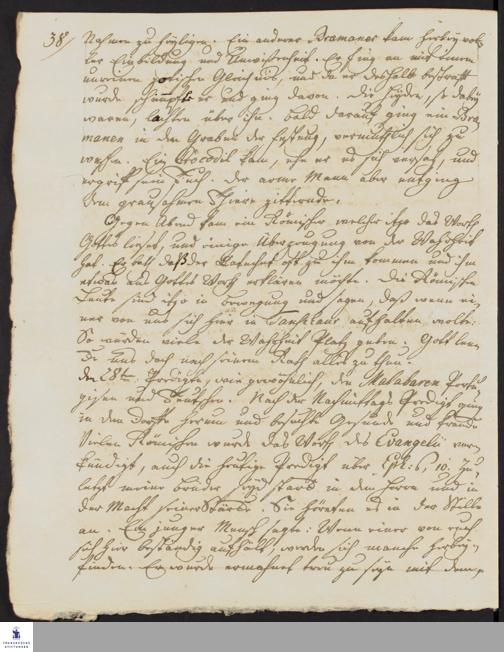 38/ Nahmen zu heyligen. Ein anderer Bramaner kam herbey vol
ler Einbildung und Unwissenheit. Er fing an mit einem
unreinen Gleichniß, und da er deshalb bestrafft
wurde, schimpfte er und ging davon. Die Heyden, so dabey
waren, lachten über ihn. Bald darauf ging ein Bra-
manen in den Graben der Festung, vermuthlich sich zu
waschen. Ein Crocodil kam, ehe er es sich versah, und
ergriff sein Tuch. Der arme Mann aber entging
dem grausahmen Thiere zitternde.
Gegen Abend kam ein Römischer welcher itzo das Wort
Gottes lieset, und einige Überzeugung von der Wahrheit
hat. Er bath daß der Catechet oft zu ihm kommen und ihm
etwas aus Gottes Wort erklären möchte. Die Römischen
Leute sind itzo in bewegung und sagen, daß wenn ei-
ner von uns sich hier in Tanschaur aufhalten wolte.
So würden viele der Wahrheit Platz geben. Gott
uns doch nach seinem Rath alles zu thun.
den 28ten Predigte, wie gewöhnlich, den Malabaren Portu
giesen und Teutschen. Nach der Nachmittags Predigt ging
in dem Dorffe herum und besuchte Gesunde und Krancke
Vielen Römischen wurde das Wort des Evangelii ver-
kündigt, auch die heutige Predigt über Eph. 6, 10. Zu
letzt meine brüder seyd starck in dem Herrn und in
der Macht seiner Stärcke. Sie höreten es in der Stille
an. Ein junger Mensch sagte: Wenn einer von euch
sich hier beständig aufhält, werden sich manche herbey-
finden. Er wurde ermahnet treu zu seyn mit dem,
FRANCKESCHE
STIFTUNGEN